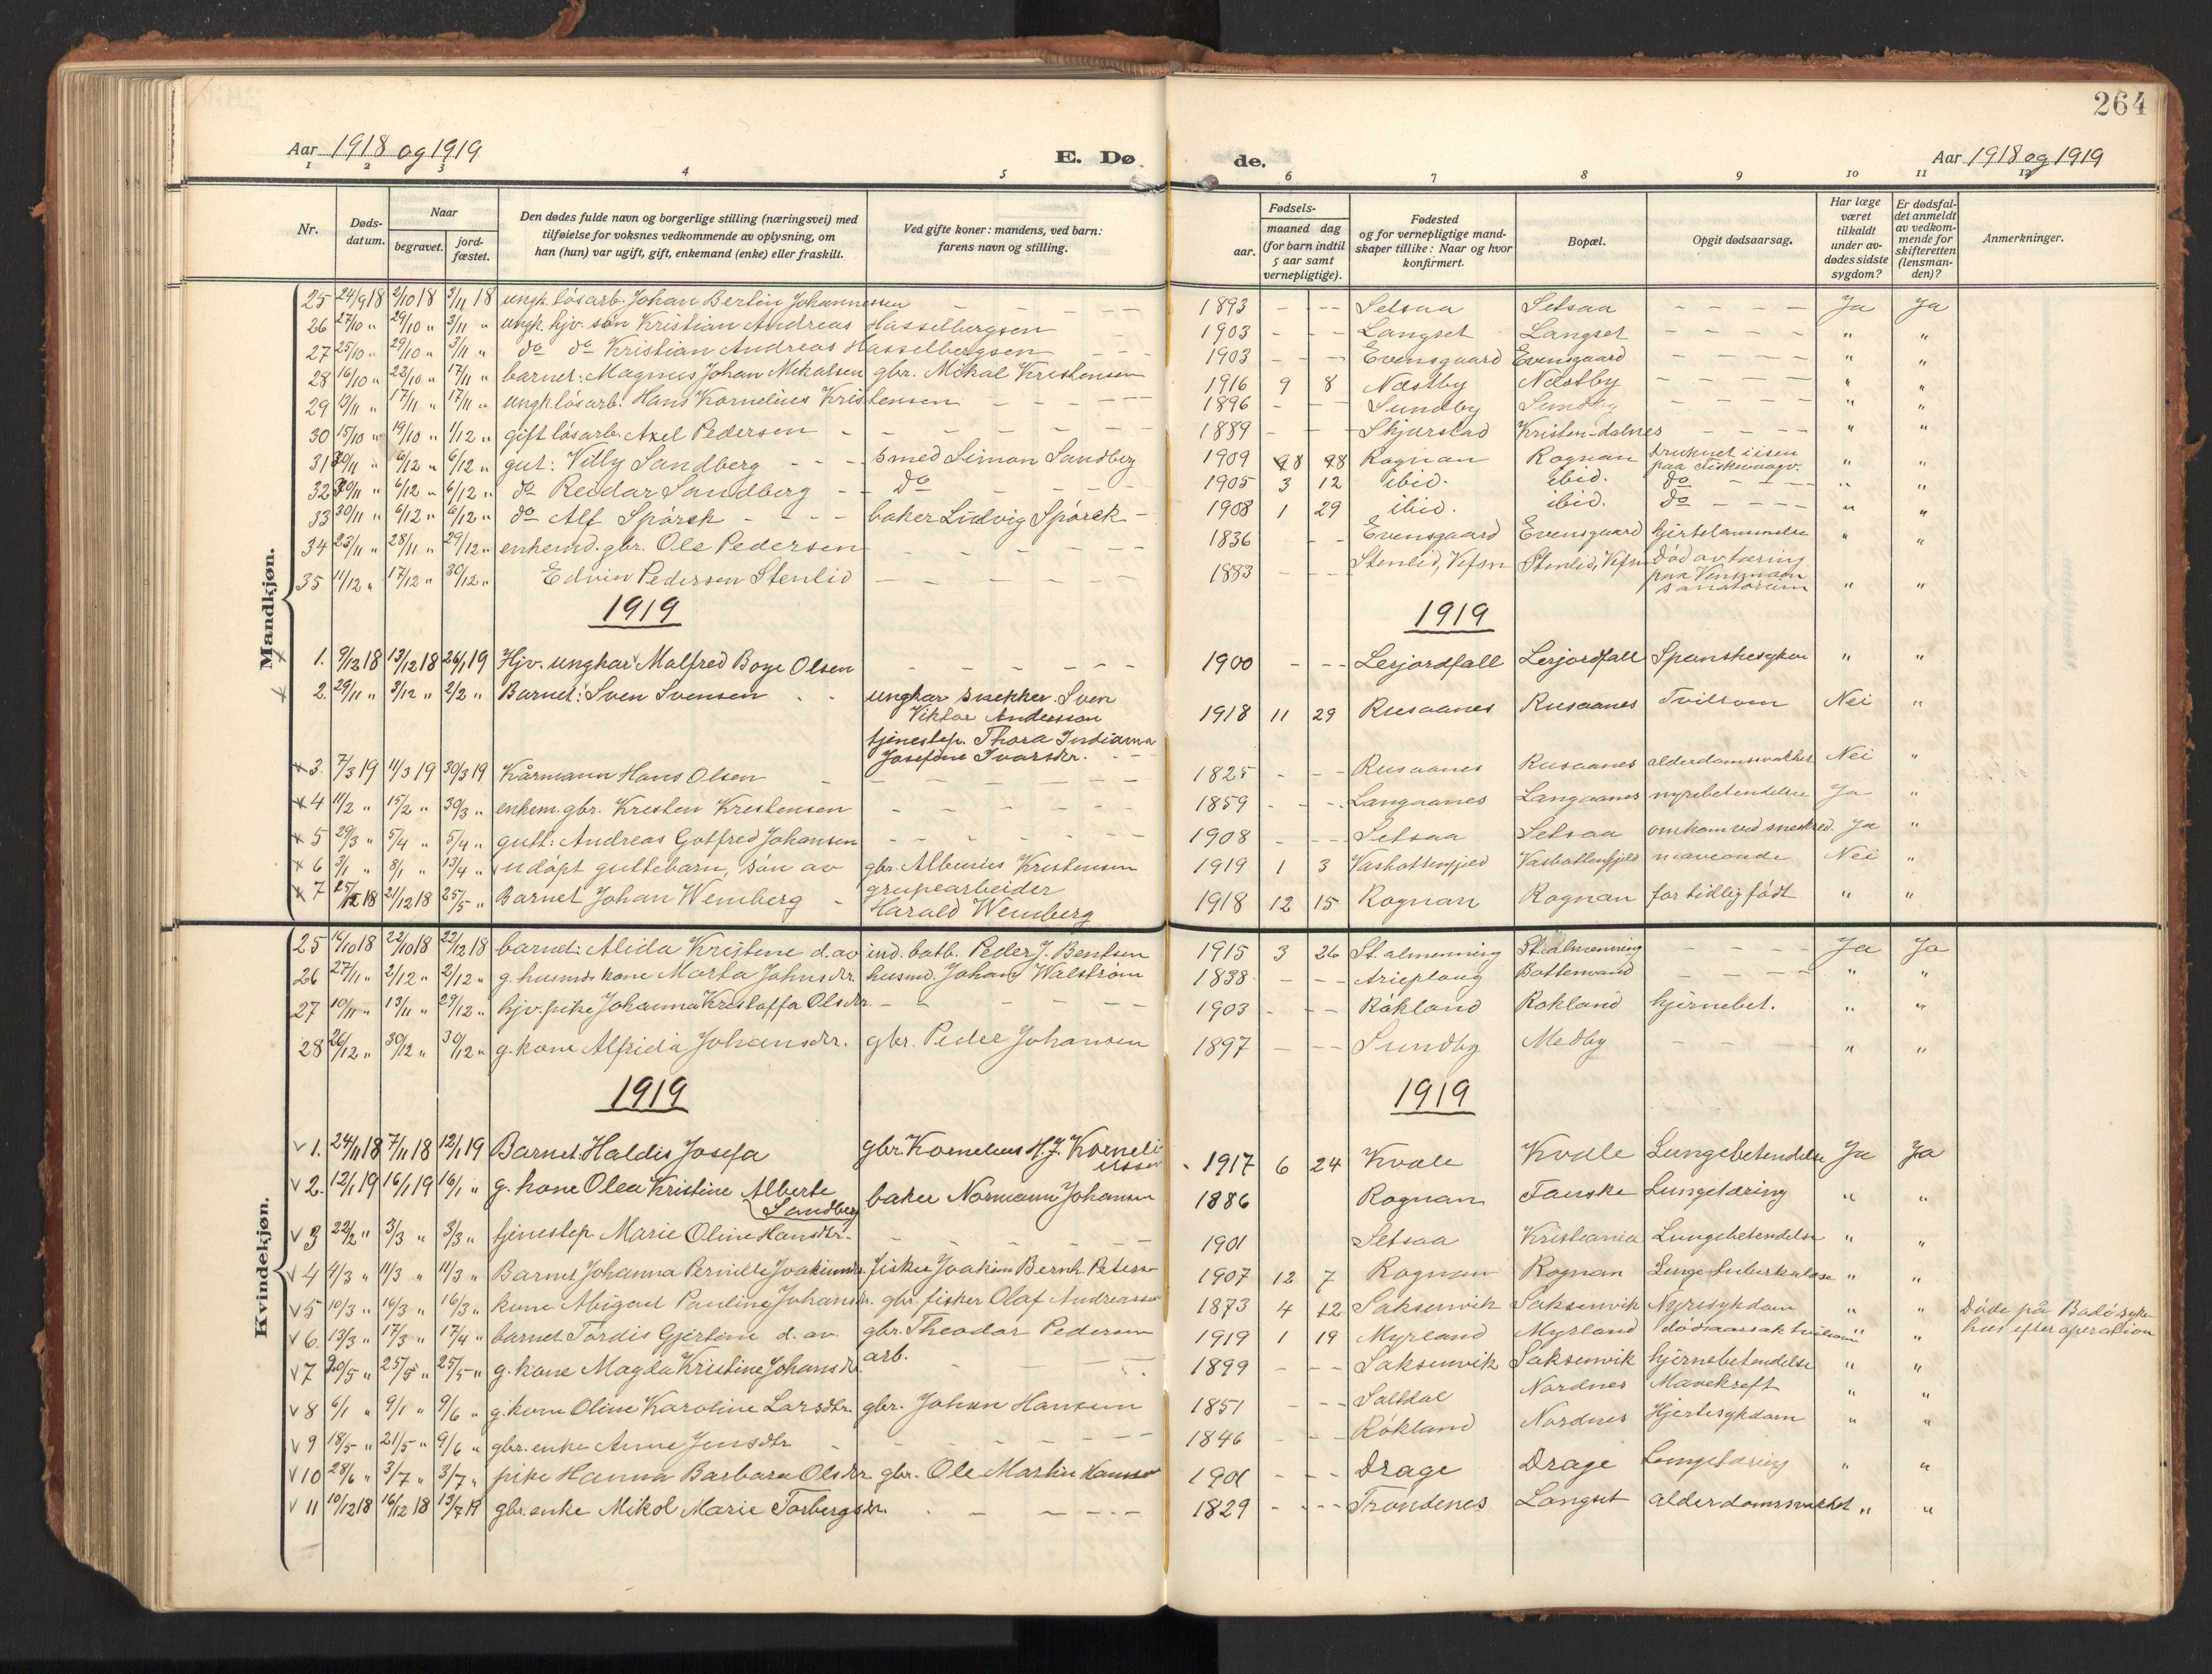 264
Aar 1918 og 1919 E. Dø de. Aar 1918 og 1919
1 2 3 4 5 6 7 8 9 10 11 12
Nr. Døds-datum. Naar begravet. jord-fæstet. Den dødes fulde navn og borgerlige stilling (næringsvei) med tilføielse for voksnes vedkommende av oplysning, om han (hun) var ugift, gift, enkemand (enke) eller fraskilt. Ved gifte koner: mandens, ved barn: farens navn og stilling. Fødsels- aar. maaned dag (for barn indtil 5 aar samt vernepligtige). Fødested og for vernepligtige mand-skaper tillike: Naar og hvor konfirmert. Bopæl. Opgit dødsaarsag. Har læge været tilkaldt under av-dødes sidste sygdom? Er dødsfal-det anmeldt av vedkom-mende for skifteretten (lensman-den)? Anmerkninger.
Mandkjøn.
25 24/9 18 2/10 18 3/11 18 ungk. løsarb. Johan Bertin Johannessen 1893 - - - Setsaa Setsaa - - - - Ja Ja
26 27/10 " 29/10 " 3/11 " ungk. hjv. søn Kristian Andreas Hasselbergsen 1903 - - - Langset Langset - - - - " "
27 25/10 " 29/10 " 3/11 " do do Kristian Andreas Hasselbergsen 1903 - - - Evensgaard Evensgaard - - - - " "
28 16/10 " 23/10 " 17/11 " barnet: Magnus Johan Mikalsen gbr. Mikal Kristensen 1916 9 8 Næstby Næstby - - - - " "
29 13/11 " 17/11 " 17/11 " ungk. løsarb. Hans Kornelius Kristensen 1896 - - - Sundby Sundby - - - - " "
30 15/10 " 19/10 " 1/12 " gift løsarb. Axel Pedersen 1889 - - - Skjerstad Kristen-dalnes - - - " "
31 30/11 " 6/12 " 6/12 " gut: Villy Sandberg - - smed Simon Sandberg 1909 8 Rognan Rognan Druknet i isen paa Fiskevaagv. " "
32 30/11 " 6/12 " 6/12 " do Reidar Sandberg - - do 1905 3 12 ibid. ibid. do - - - " "
33 30/11 " 6/12 " 6/12 " do Alf Spørck - - - baker Ludvig Spørck - 1908 1 29 ibid. ibid. do - - - " "
34 23/11 " 28/11 " 29/12 " enkemd. gbr. Ole Pedersen 1836 - - Evensgaard Evensgaard hjertelammelse " "
35 11/12 " 17/12 " 30/12 " Edvin Pedersen Stenlid 1883 - - - Stenlid, Vefsn Stenlid, Vefsn Død av tæring paa Vensmoen sanatorium " "
1919 1919
1. 9/12 18 13/12 18 26/1 19 Hjv. ungkar Malfred Boye Olsen 1900 - - - Lerjordfall Lerjordfall Spanskesyken " "
2. 29/11 " 3/12 " 2/2 " Barnet: Sven Svensen ungkar snekker Sven Viktor Andersson tjenestep. Thora Indiana Josefine Ivarsdr. 1918 11 29 Rusaanes Rusaanes Tvilsom Nei "
3. 7/3 19 11/3 19 30/3 19 Kårmann Hans Olsen 1825 - - - Rusaanes Rusaanes alderdomssvakhet Nei "
4 11/2 " 15/2 " 30/3 " enkem. gbr. Kristen Kristensen 1859 - - - Langaanes Langaanes nyrebetendelse Ja "
5 29/3 " 5/4 " 5/4 " gutt: Andreas Gotfred Johansen 1908 - - - Setsaa Setsaa omkom ved sneskred. Ja "
6 3/1 " 8/1 " 13/4 " udøpt guttebarn, søn av gbr. Albinius Kristensen 1919 1 3 Vasbottenfjeld Vasbottenfjeld maveonde Nei "
7 25/12 18 21/12 18 25/5 " Barnet Johan Wemberg - grupearbeider Harald Wemberg 1918 12 15 Rognan Rognan for tidlig født " "
Kvindekjøn.
25 16/10 18 22/10 18 22/12 18 barnet: Alida Kristine d. av ind. batb. Peder J. Bentsen 1915 3 26 St. almenning St. almenning - - - Ja Ja
26 27/11 " 2/12 " 2/12 " g. husmds kone Marta Johnsdr. husmd. Johan Walstrøm 1838 - - - Arieplaug Bottenvand - - - " "
27 10/11 " 13/11 " 29/12 " hjv. pike Johanna Kristoffa Olsdr. 1903 - - - Røkland Rokland hjernebet. " "
28 26/12 " 30/12 " 30/12 " g. kone Alfrida Johansdr. gbr. Peder Johansen 1897 - - - Sundby Medby - - - - " "
1919 1919
1. 24/11 18 7/11 18 12/1 19 Barnet Haldis Josefa gbr. Kornelius H. J. Korneliussen 1917 6 24 Kvale Kvale Lungebetendelse Ja Ja
2. 12/1 19 16/1 19 16/1 " g. kone Olea Kristine Alberte Sandberg baker Normann Johansen 1886 Rognan Fauske Lungetæring " "
3 22/2 " 3/3 " 3/3 " tjenestep Marie Oline Hansdtr. 1901 Setsaa Kristiania Lungebetendelse " "
4 4/3 " 11/3 " 11/3 " Barnet Johanna Pernille Joakimsdr. fisker Joakim Bernh. Petersen 1907 12 7 Rognan Rognan Lunge tuberkulose " "
5 10/3 " 16/3 " 16/3 " kone Abigael Pauline Johansdr. gbr. fisker Olaf Andreassen 1873 4 12 Saksenvik Saksenvik Nyresykdom " " Døde på Bodø syke-hus efter operation
6. 13/3 " 17/3 " 17/4 " barnet Tordis Gjertine d. av. gbr. Theodor Pedersen 1919 1 19 Myrland Myrland dødsaarsak tvilsom " "
7 20/5 " 25/5 " 25/5 " g. kone Magda Kristine Johansdr. arb. 1899 - - - Saksenvik Saksenvik hjernebetendelse " "
8 6/1 " 9/1 " 9/6 " g. kone Oline Karoline Larsdtr. gbr. Johan Hansen 1851 - - - Saltdal Nordnes Mavekreft " "
9 18/5 " 21/5 " 9/6 " gbr. enke Anne Jensdtr 1846 - - - Røkland Nordnes Hjertesykdom " "
10 28/6 " 3/7 " 3/7 " pike Hanna Barbara Olsdr gbr. Ole Martin Hansen 1901 - - - Drage Drage Lungetæring " "
11 10/12 18 16/12 18 13/7 19 gbr. enke Mikol Marie Torbergsdr. 1829 - - - Trondenes Langset alderdomssvakhet " "